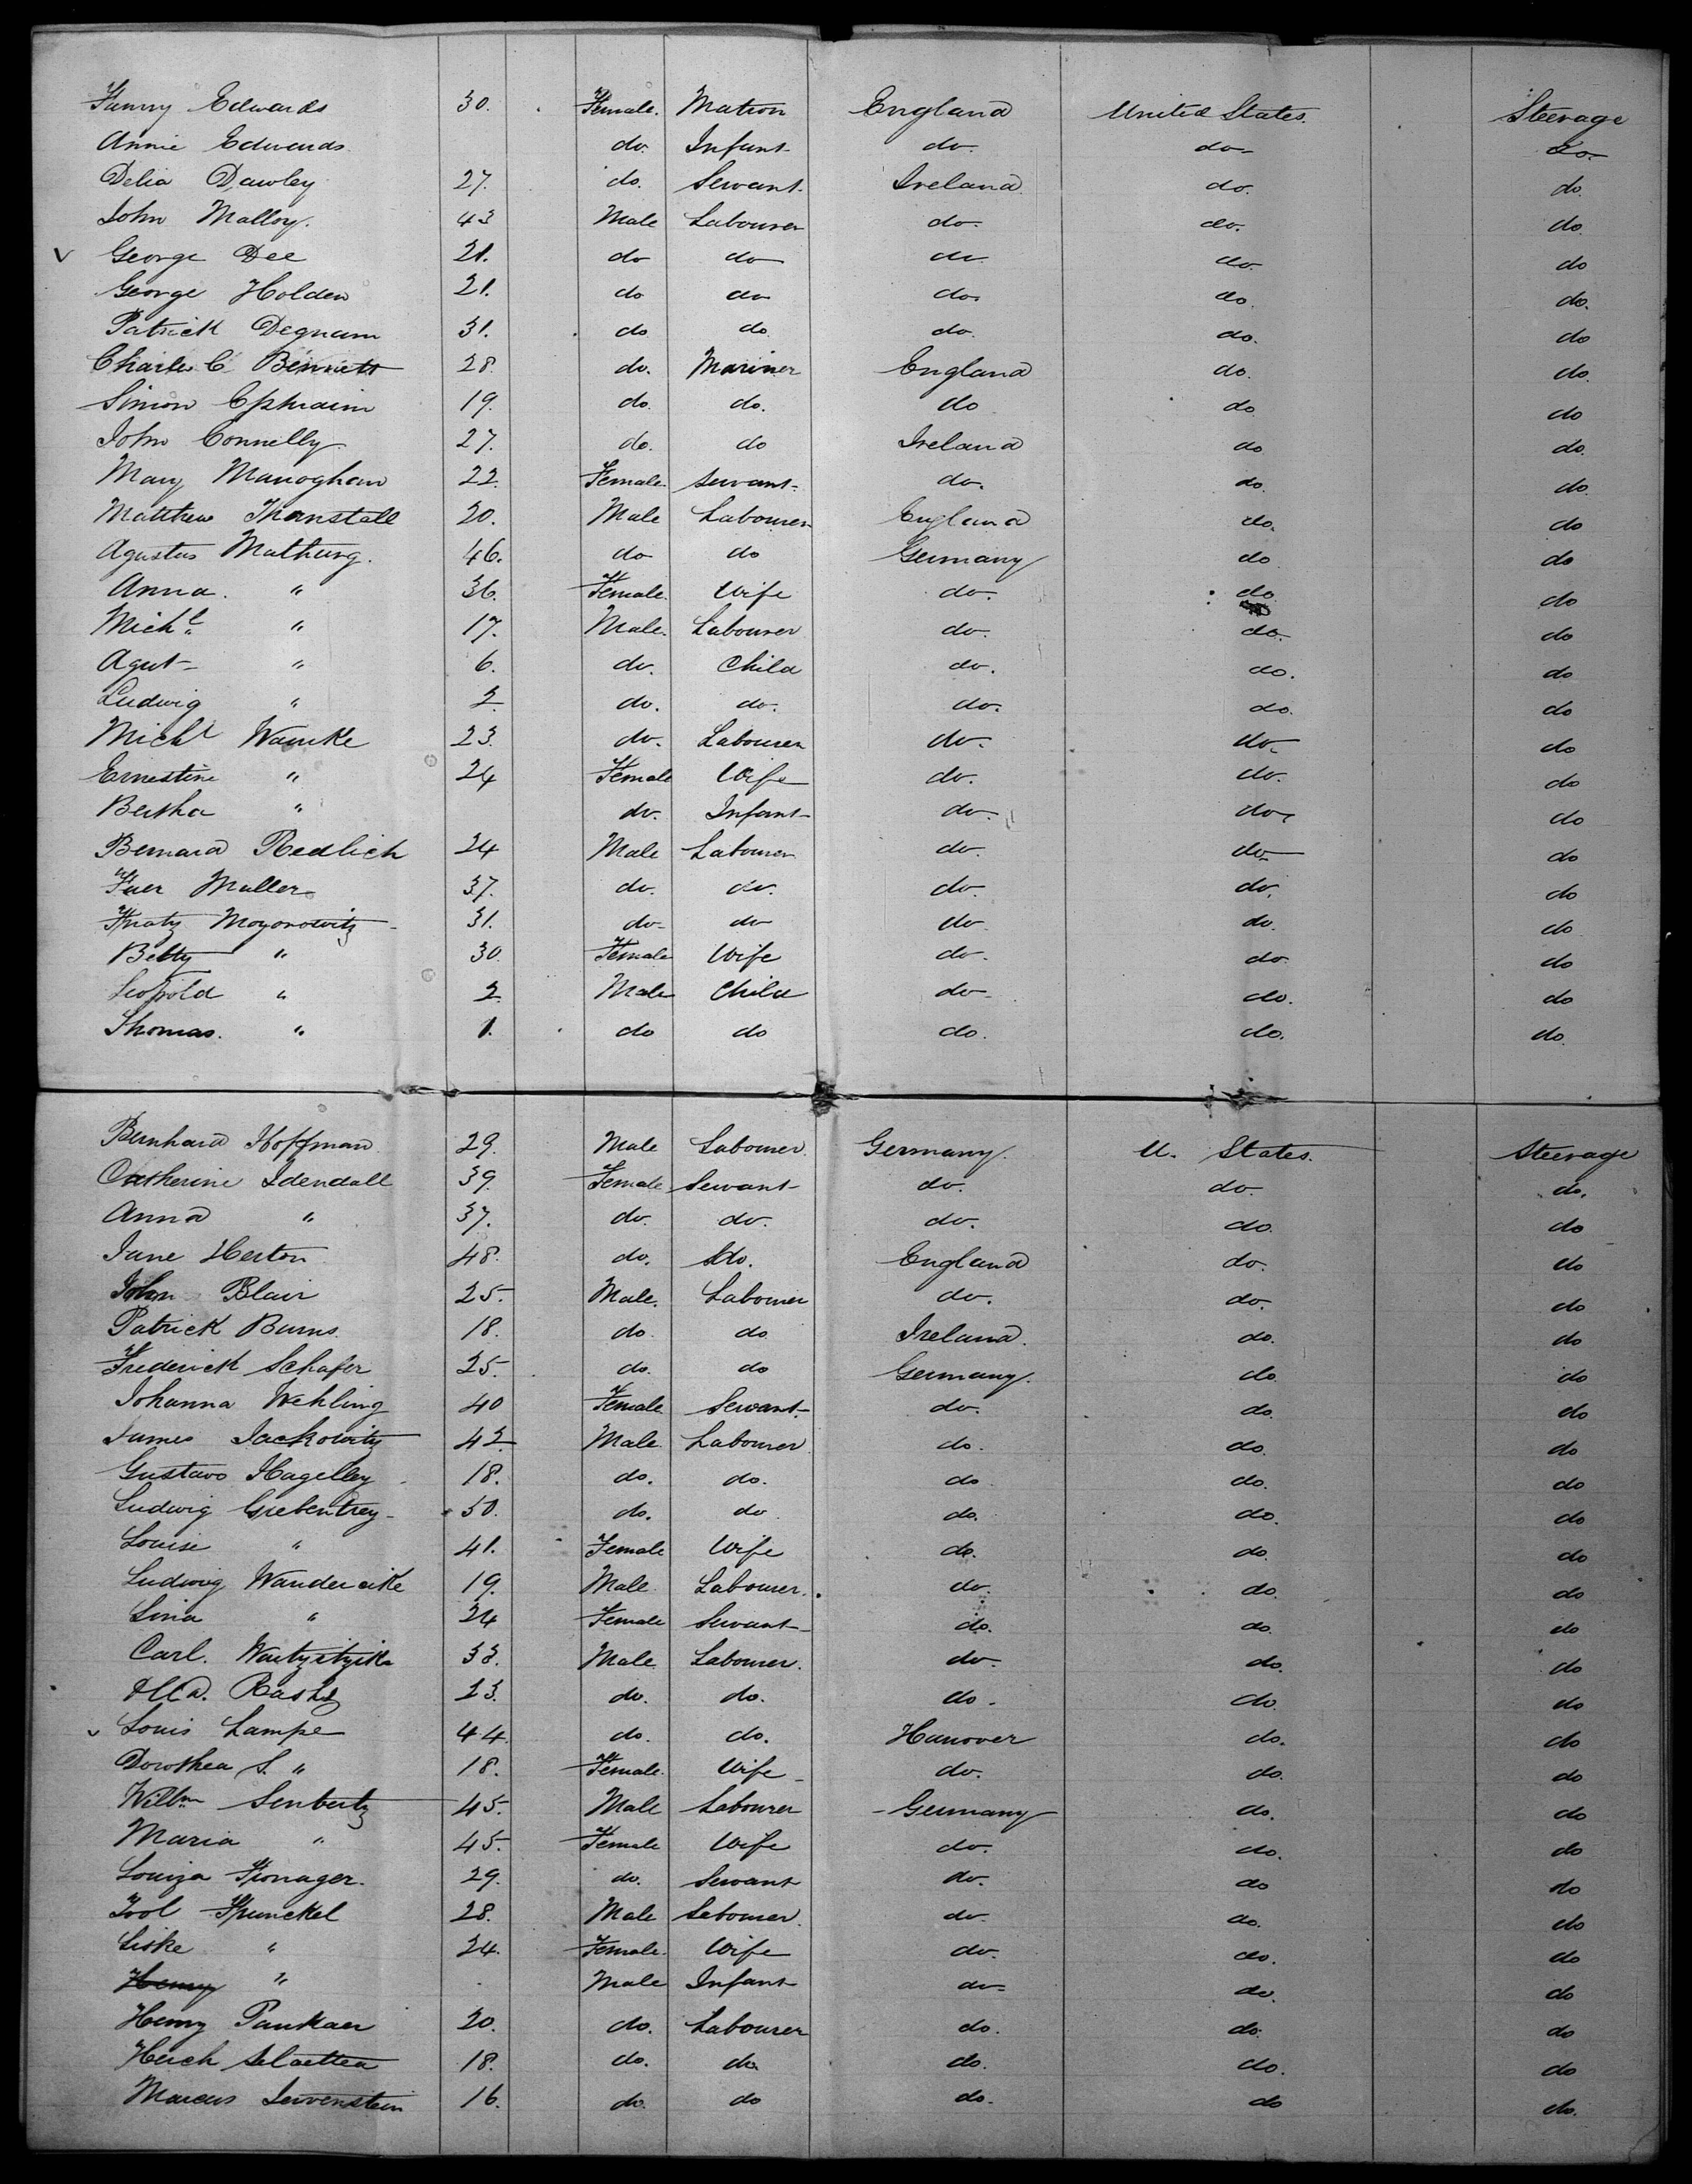 Fanny Edwards 30. Female. Matron England United States. Steerage
Annie Edwards do. Infant do. do. do.
Delia Dawley 27. do. Servant Ireland do. do.
John Malloy. 43 Male Labourer do. do. do.
George Dee 21. do do do do do
George Holden 21. do do do. do. do.
Patrick Degnam 31. do do do. do. do
Charles C Bennett 28. do. Mariner England do. do.
Simon Ephraim 19. do. do. do do do
John Connelly 27. do. do Ireland do do.
Mary Manoghan 22. Female Servant do. do. do.
Matthew Thanstall 20. Male Labourer England do. do
Agustus Mathurg. 46. do do Germany do do
Anna. " 36. Female. Wife do. do do
Michl. " 17. Male. Labourer do. do. do
Agust " 6. do. Child do. do. do
Ludwig " 2 do. do. do. do. do
Michl Warnke 23. do. Labourer do. do. do
Ernestine " 24 Female Wife do. do. do
Bertha " do. Infant do. do. do
Bernard Redlich 24 Male Labourer do. do do
Muller 37. do. do. do. do. do
Moyorowitz 31. do do do do. do
Betty " 30. Female Wife do. do. do
Leopold " 2 Male Child do do. do
Thomas. " 1. do do do. do. do.
Bernhard Hoffman 29. Male Labourer. Germany. U. States. Steerage
Catherine Idendall 39. Female Servant do. do. do.
Anna " 37. do. do. do. do. do
Jane Herton 48. do. do. England do. do
John Blair 25. Male. Labourer do. do. do
Patrick Burns. 18. do. do Ireland. do. do
Frederick Schafer 25. do. do Germany. do. do
Johanna Wehling 40 Female Servant. do. do. do
James Jackowitz 42 Male Labourer do. do. do
Gustavo Hagelley 18. do. do. do do. do
Ludwig Grebentrey 50. do. do do. do. do
Louise " 41. Female Wife do. do. do
Ludwig Wandercike 19. Male Labourer. do. do. do
Lina " 24 Female Servant do. do. do
Carl. 33. Male Labourer. do. do. do
23. do. do. do. do. do
Louis Lampe 44. do. do. Hanover do. do
Dorothea S. " 18. Female. Wife do. do. do
Willm Senbertz 45. Male Labourer Germany do. do
Maria " 45. Female Wife do. do. do
Louiza Fronager. 29. do. Servant do. do do
28. Male Labourer. do. do. do
Liske " 24. Female. Wife do. do. do
Henry " Male Infant do. do. do
Henry Pankaer 20. do. Labourer do. do. do
18. do. do. do. do. do
Marcus Lewenstein 16. do. do do. do do.